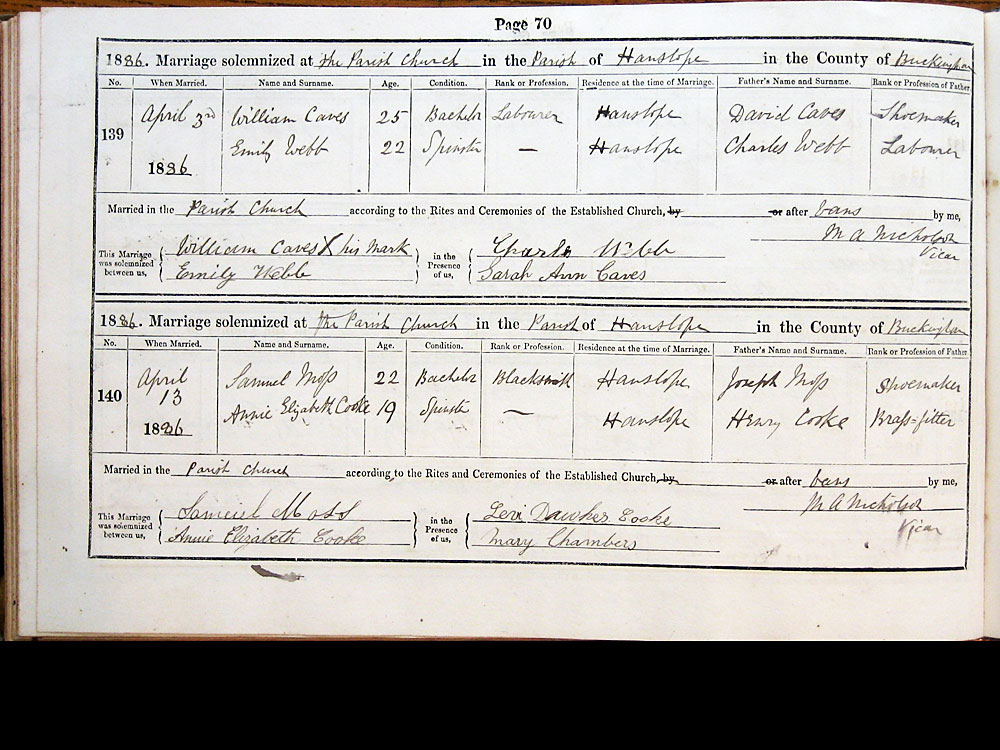 Page 70
1886. Marriage solemnized at the Parish Church in the Parish of Hanslope in the County of Buckingham
No. When Married. Name and Surname. Age. Condition. Rank or Profession. Residence at the time of Marriage. Father's Name and Surname. Rank or Profession of Father.
139 April 3rd William Caves 25 Bachelor Labourer Hanslope David Caves Shoemaker
Emily Webb 22 Spinster — Hanslope Charles Webb Labourer
1886
Married in the Parish Church according to the Rites and Ceremonies of the Established Church, by or after bans by me,
M A Nicholson
Vicar
This Marriage was solemnized between us, William Caves X his mark in the Presence of us, Charles Webb
Emily Webb Sarah Ann Caves
1886. Marriage solemnized at the Parish Church in the Parish of Hanslope in the County of Buckingham
No. When Married. Name and Surname. Age. Condition. Rank or Profession. Residence at the time of Marriage. Father's Name and Surname. Rank or Profession of Father.
140 April 13 Samuel Moss 22 Bachelor Blacksmith Hanslope Joseph Moss Shoemaker
Annie Elizabeth Cooke 19 Spinster — Hanslope Henry Cooke Brass-fitter
1886
Married in the Parish Church according to the Rites and Ceremonies of the Established Church, by or after bans by me,
M A Nicholson
Vicar
This Marriage was solemnized between us, Samuel Moss in the Presence of us, Levi Dawkes Cooke
Annie Elizabeth Cooke Mary Chambers